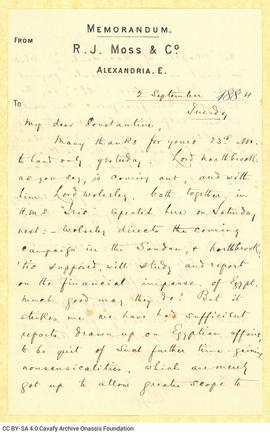 MEMORANDUM.
FROM
R. J. MOSS & Co
ALEXANDRIA. E.
2 September 1884
TO
Tuesday
My dear Constantine,
Many thanks for yours 23rd
to hand only yesterday. Lord Northbrook,
as you say, is coming out, and with
him Lord Wolseley, both together in
H.M.S. "Iris" expected here on Saturday
next: - Wolseley directs the coming
campaign in the Soudan, & Northbrook,
'tis supposed, will study and report
on the financial impasse of Egypt.
much good may they do! But it
strikes me we have had sufficient
reports drawn up on Egyptian affairs
to be quit of such further time-gaining
nonsensicalities, which are merely
got up to allow greater scope to
CC BY-SA 4.0 Cavafy Archive Onassis Foundation